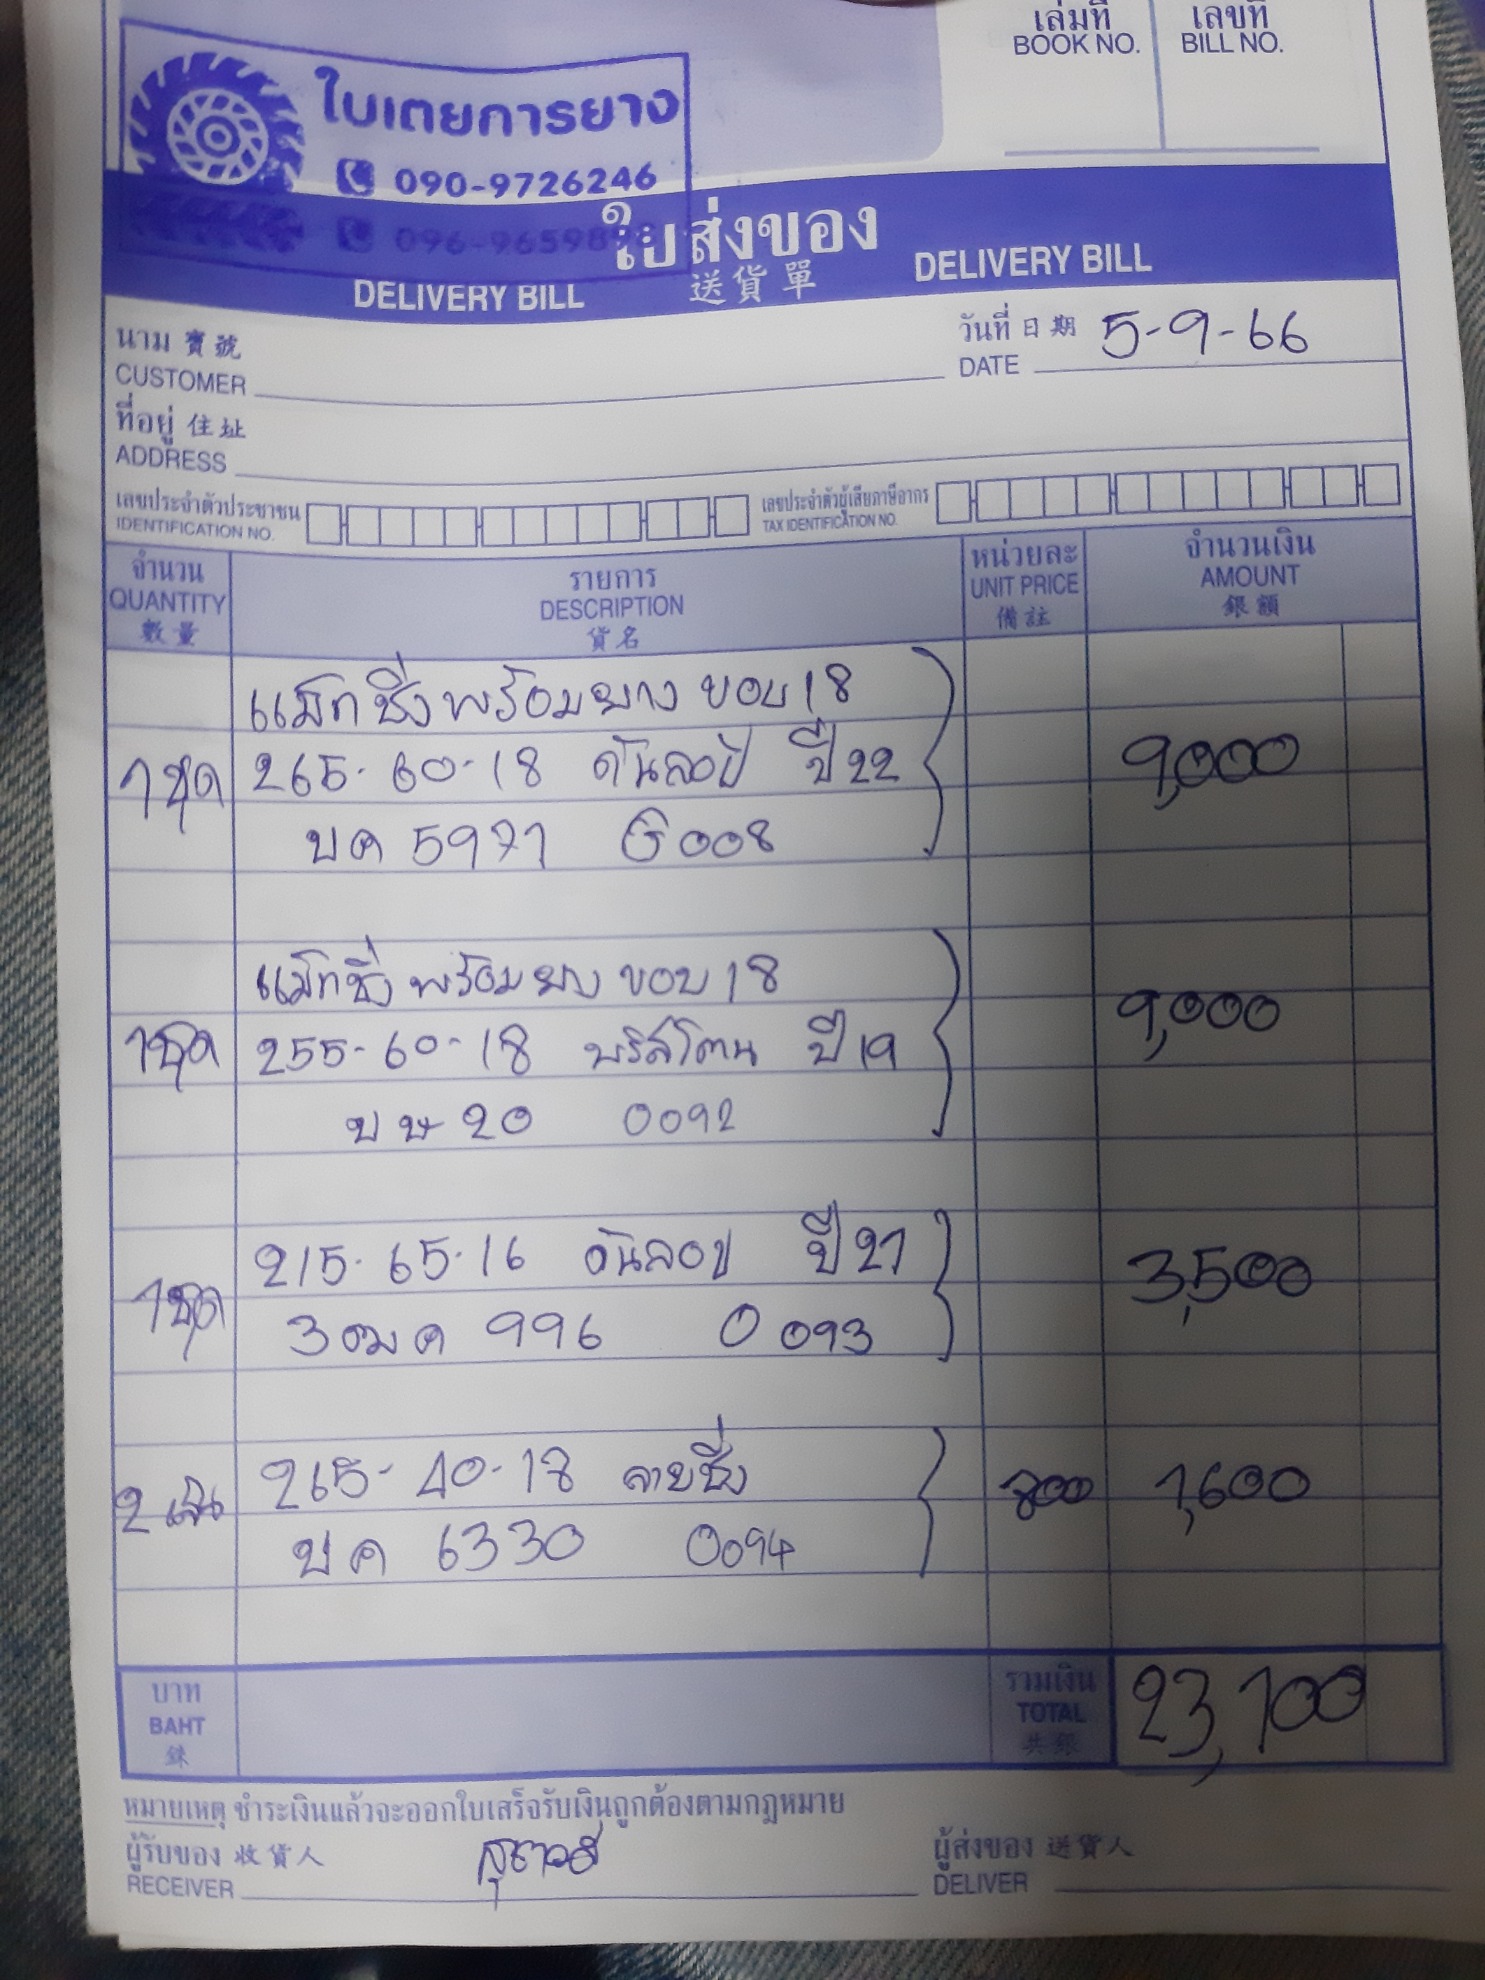 เล่มที่ เลขที่
BOOK NO. BILL NO.
ใบเตยการยาง
090-9726246
096-96598
ใบส่งของ
DELIVERY BILL 送貨單 DELIVERY BILL
นาม寶號 วันที่日期 5-9-66
CUSTOMER DATE
ที่อยู่住址
ADDRESS
เลขประจำตัวประชาชน เลขประจำตัวผู้เสียภาษีอากร
IDENTIFICATION NO. TAX IDENTIFICATION NO.
จำนวน รายการ หน่วยละ จำนวนเงิน
QUANTITY DESCRIPTION UNIT PRICE AMOUNT
數量 貨名 備註 銀額
แม็กซิ่งพร้อมยาง ขอบ 18
1 ชุด 265-60-18 ดันลอป ปี 22 9,000
บค 5971 G008
แม็กซิ่งพร้อมยาง ขอบ 18
1 ชุด 255-60-18 บริสโตน ปี 19 9,000
บษ 20 0092
1 ชุด 215-65-16 ดันลอป ปี 21 3,500
3ฒค 996 0093
2 เส้น 265-40-18 ลายซิ่ง 800 1,600
บค 6330 0094
บาท รวมเงิน
BAHT TOTAL 23,100
銖 共銀
หมายเหตุ ชำระเงินแล้วจะออกใบเสร็จรับเงินถูกต้องตามกฎหมาย
ผู้รับของ 收貨人 ผู้ส่งของ 送貨人
RECEIVER DELIVER